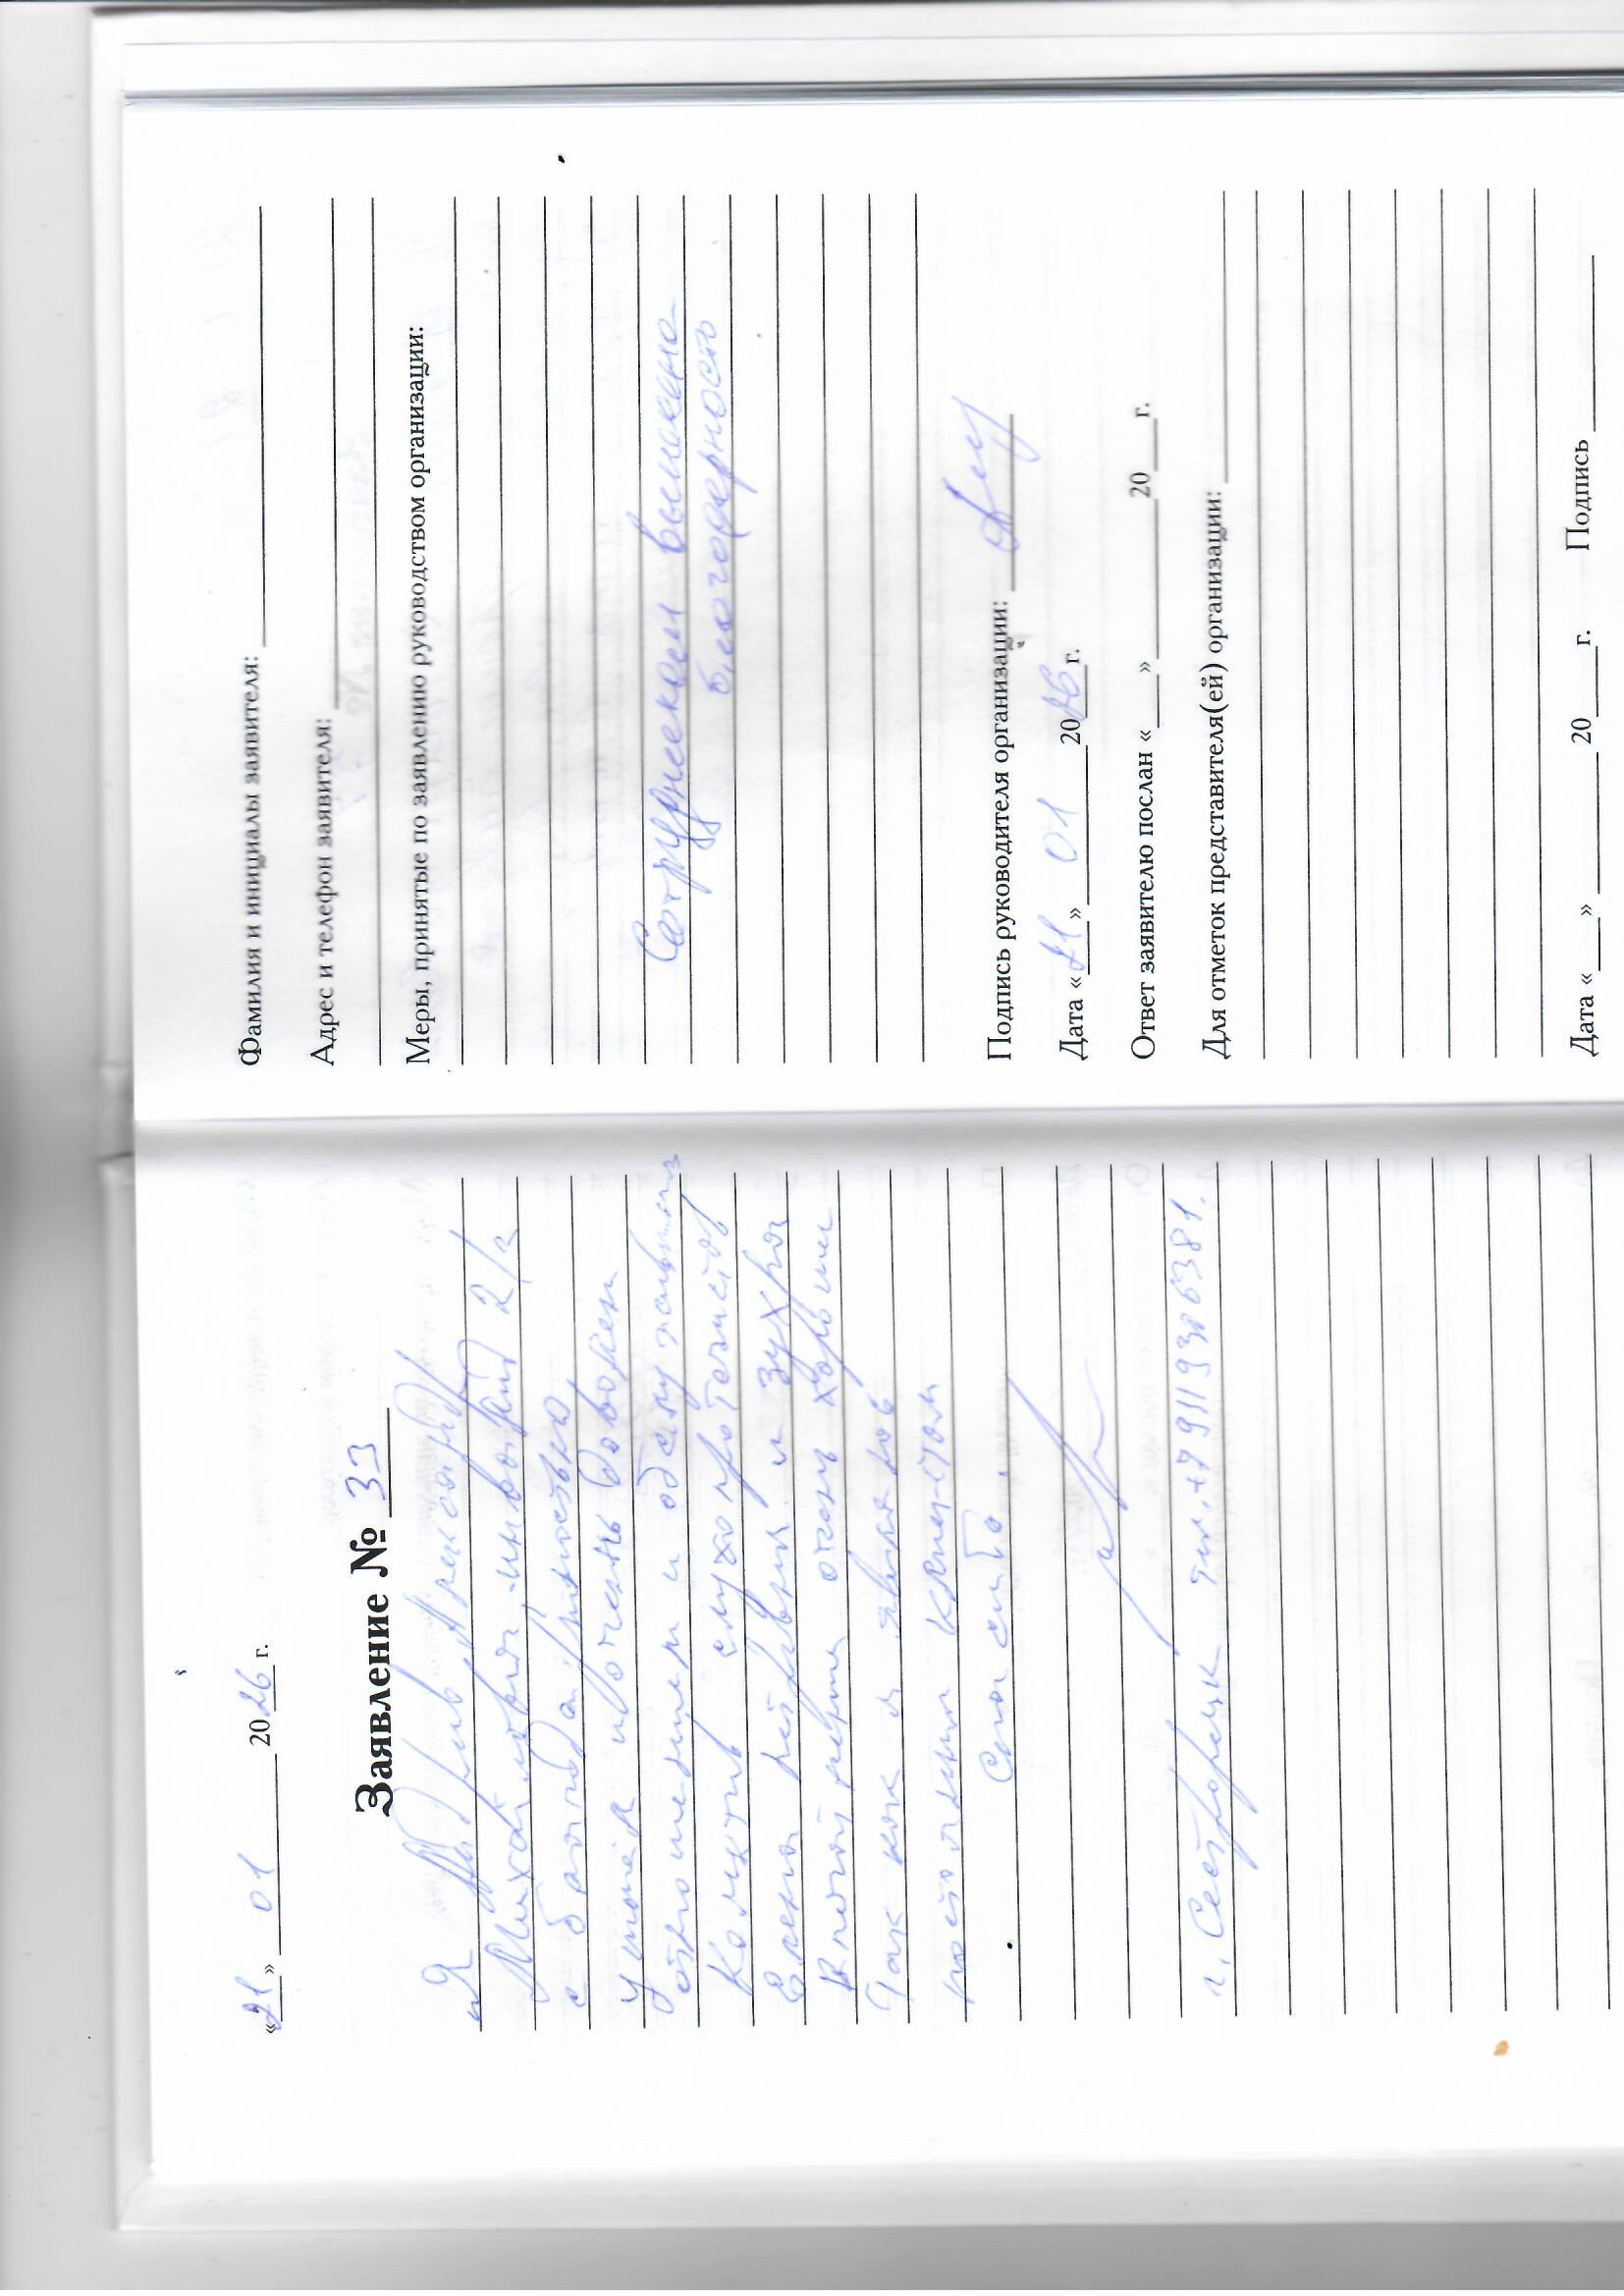 «21» 01 2026 г.
Заявление № 33
Я Александр
Михайлович, инвалид 2/з
с благодарностью,
и очень доволен
отношением и обслуживанием
Коллектив слухопротезистов
Елена и Зухра
очень хорошие
Так как я являюсь
постоянным клиентом
Спасибо.
г. Сестрорецк тел. +79119306381.
Фамилия и инициалы заявителя:
Адрес и телефон заявителя:
Меры, принятые по заявлению руководством организации:
Сотрудникам вынесена
благодарность
Подпись руководителя организации:
Дата «21» 01 2026 г.
Ответ заявителю послан «___» 20___ г.
Для отметок представителя(ей) организации:
Дата «___» 20___ г. Подпись